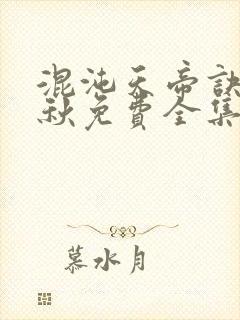 混沌天帝訣
秋免費全集
慕水月